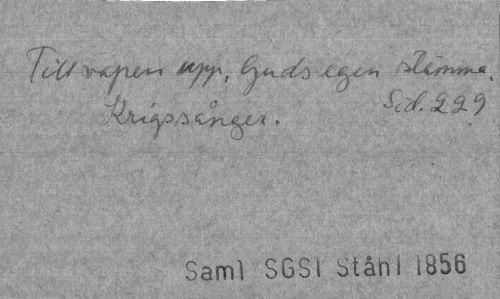 Till vapen upp, Guds egen stämma.
Sid. 229
Krigssånger.
Saml SGSl Ståhl 1856